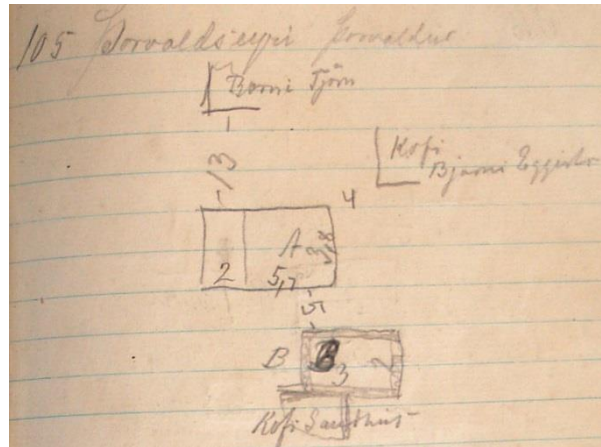 105 Þorvaldseyri Þorvaldur
Bjarni Tjörn
13
Kofi
Bjarni Eggerts
4
A
3,8
2
5,7
5
B
B
3
2
Kofi